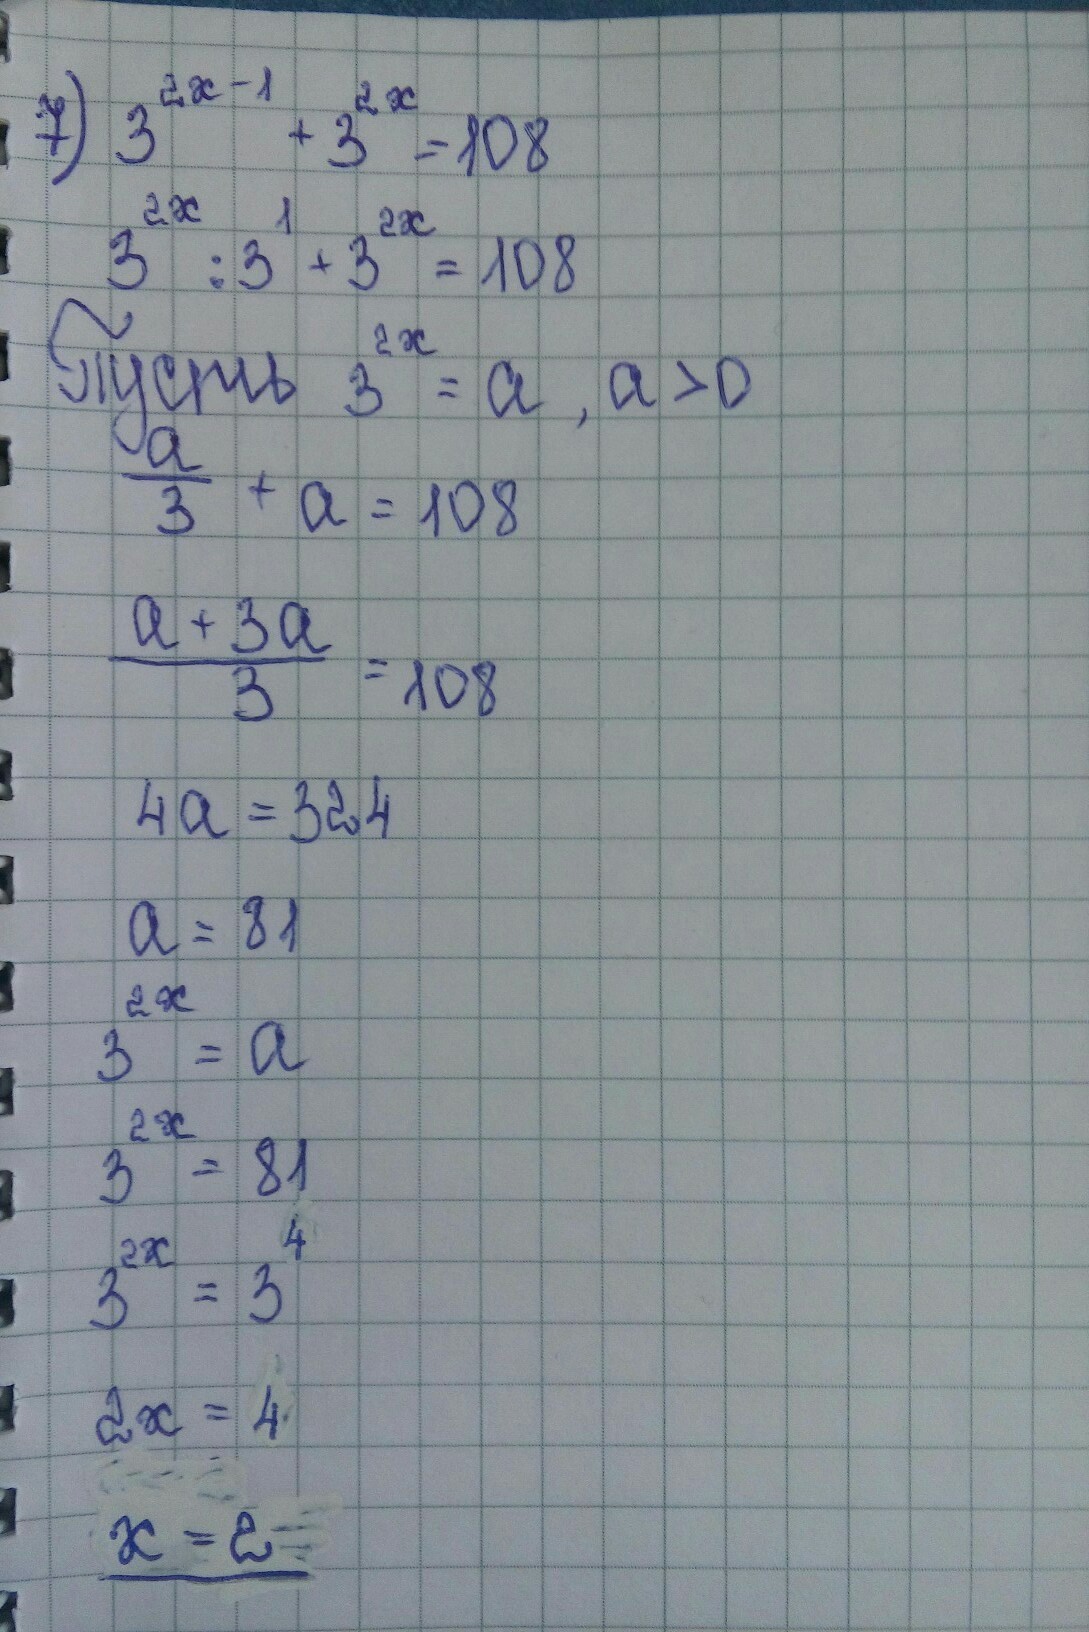 7) 3^{2x-1} + 3^{2x} = 108
3^{2x} : 3^1 + 3^{2x} = 108
Пусть 3^{2x} = a, a > 0
a/3 + a = 108
(a + 3a)/3 = 108
4a = 324
a = 81
3^{2x} = a
3^{2x} = 81
3^{2x} = 3^4
2x = 4
x = 2